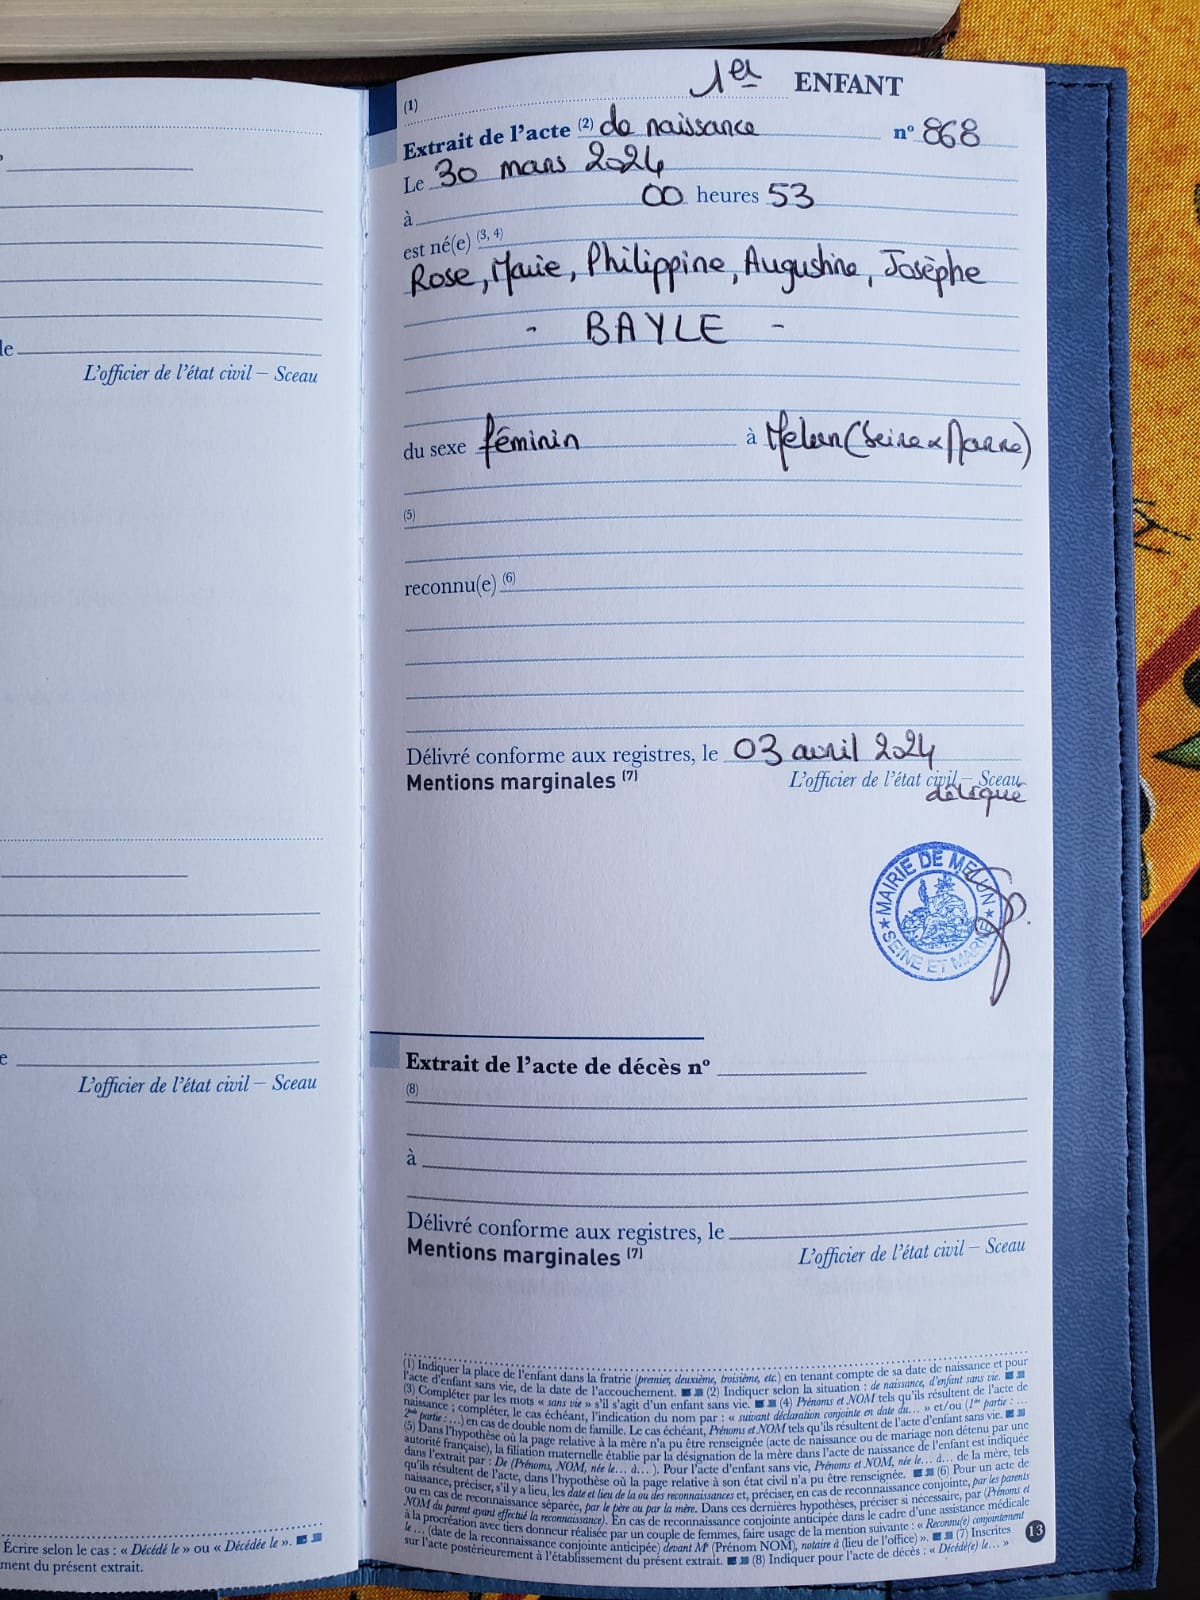 le
L'officier de l'état civil – Sceau
e
L'officier de l'état civil – Sceau
Écrire selon le cas : « Décédé le » ou « Décédée le ».
ment du présent extrait.
(1) 1er ENFANT
Extrait de l'acte (2) de naissance n° 868
Le 30 mars 2024
à 00 heures 53
est né(e) (3, 4)
Rose, Marie, Philippine, Augustine, Josèphe
- BAYLE -
du sexe féminin à Melun (Seine & Marne)
(5)
reconnu(e) (6)
Délivré conforme aux registres, le 03 avril 2024
Mentions marginales (7) L'officier de l'état civil – Sceau
délégué
MAIRIE DE MELUN
SEINE ET MARNE
Extrait de l'acte de décès n°
(8)
à
Délivré conforme aux registres, le
Mentions marginales (7) L'officier de l'état civil – Sceau
(1) Indiquer la place de l'enfant dans la fratrie (premier, deuxième, troisième, etc.) en tenant compte de sa date de naissance et pour
l'acte d'enfant sans vie, de la date de l'accouchement. (2) Indiquer selon la situation : de naissance, d'enfant sans vie.
(3) Compléter par les mots « sans vie » s'il s'agit d'un enfant sans vie. (4) Prénoms et NOM tels qu'ils résultent de l'acte de
naissance ; compléter, le cas échéant, l'indication du nom par : « suivant déclaration conjointe en date du… » et/ou (1re partie : …
2me partie : …) en cas de double nom de famille. Le cas échéant, Prénoms et NOM tels qu'ils résultent de l'acte d'enfant sans vie.
(5) Dans l'hypothèse où la page relative à la mère n'a pu être renseignée (acte de naissance ou de mariage non détenu par une
autorité française), la filiation maternelle établie par la désignation de la mère dans l'acte de naissance de l'enfant est indiquée
dans l'extrait par : De (Prénoms, NOM, née le… à… ). Pour l'acte d'enfant sans vie, Prénoms et NOM, née le… à… de la mère, tels
qu'ils résultent de l'acte, dans l'hypothèse où la page relative à son état civil n'a pu être renseignée. (6) Pour un acte de
naissance, préciser, s'il y a lieu, les date et lieu de la ou des reconnaissances et, préciser, en cas de reconnaissance conjointe, par les parents
ou en cas de reconnaissance séparée, par le père ou par la mère. Dans ces dernières hypothèses, préciser si nécessaire, par (Prénoms et
NOM du parent ayant effectué la reconnaissance). En cas de reconnaissance conjointe anticipée dans le cadre d'une assistance médicale
à la procréation avec tiers donneur réalisée par un couple de femmes, faire usage de la mention suivante : « Reconnu(e) conjointement
le … (date de la reconnaissance conjointe anticipée) devant Me (Prénom NOM), notaire à (lieu de l'office) ». (7) Inscrites
sur l'acte postérieurement à l'établissement du présent extrait. (8) Indiquer pour l'acte de décès : « Décédé(e) le… »
13